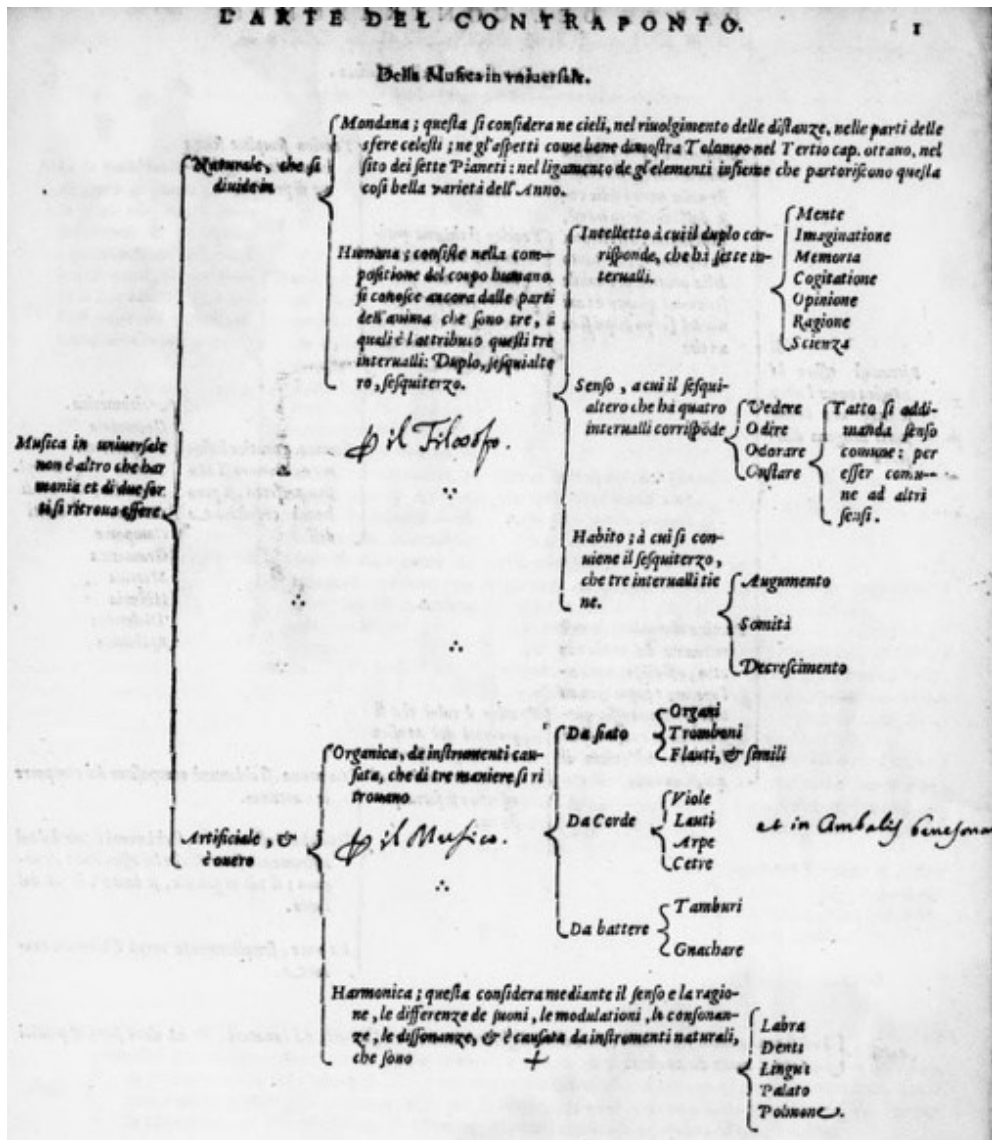 L'ARTE DEL CONTRAPONTO.
1
Della Musica in vniuersale.
Mondana ; questa si considera ne cieli, nel riuolgimento delle distanze, nelle parti delle
sfere celesti ; ne gl'aspetti come bene dimostra Tolomeo nel Tertio cap. ottauo, nel
sito dei sette Pianeti : nel ligamento de gl'elementi insieme che partoriscono questa
cosi bella varietà dell'Anno.
Naturale, che si
diuide in
Humana ; consiste nella com-
positione del corpo humano.
si conosce ancora dalle parti
dell'anima che sono tre, à
quali è l'attributo questi tre
interualli: Duplo, sesquialte
ro, sesquiterzo.
Intelletto à cui il duplo cor-
risponde, che hà sette in-
terualli.
Mente
Imaginatione
Memoria
Cogitatione
Opinione
Ragione
Scienza
Senso , a cui il sesqui-
altero che hà quatro
interualli corrispōde
Vedere
Odire
Odorare
Gustare
Tatto si addi-
manda senso
comune : per
esser comu-
ne ad altri
sensi .
il Filosofo.
Musica in uniuersale
non è altro che har
monia et di due sor
ti si ritroua essere.
Habito ; à cui si con-
uiene il sesquiterzo ,
che tre interualli tie
ne.
Augumento
Somità
Decrescimento
Artificiale , &
è ouero
Organica, da instrumenti cau-
sata, che di tre maniere si ri
trouano.
il Musico.
Da fiato
Organi
Tromboni
Flauti, & simili
Da Corde
Viole
Lauti
Arpe
Cetre
et in
Da battere
Tamburi
Gnachare
Harmonica ; questa considera mediante il senso e la ragio-
ne , le differenze de suoni , le modulationi , le consonan-
ze , le dissonanze, & è causata da instrumenti naturali,
che sono
Labra
Denti
Lingua
Palato
Polmone.